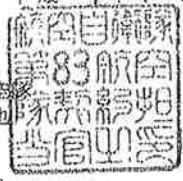 航空自衛隊
第83航空
隊契約担
当官之印